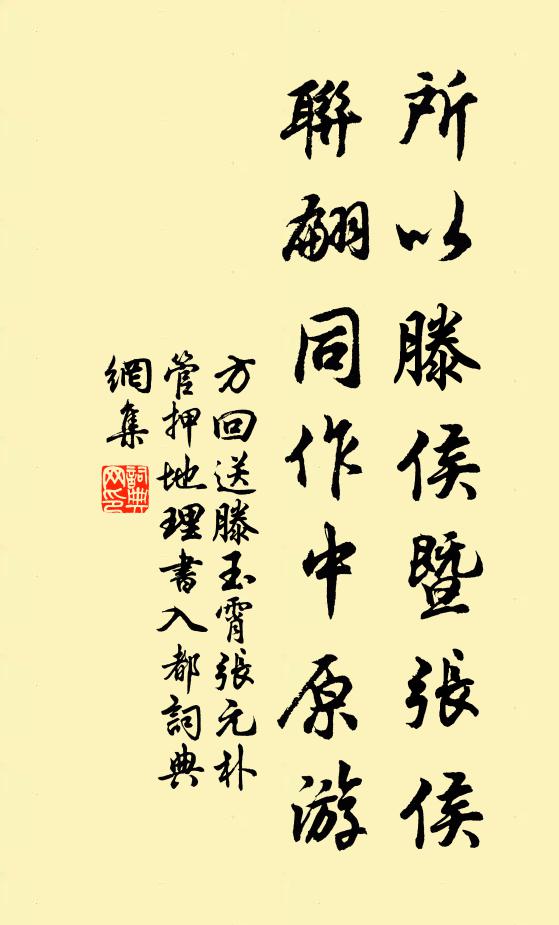 所以滕侯暨張侯
聯翩同作中原游
方回送滕玉霄張元朴
管押地理書入都詞典
網集
詞典網印